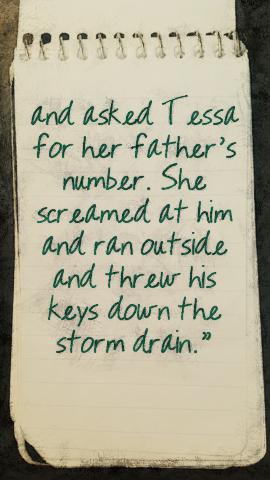 and asked Tessa
for her father's
number. She
screamed at him
and ran outside
and threw his
keys down the
storm drain."